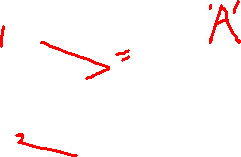 1 = 'A'
2